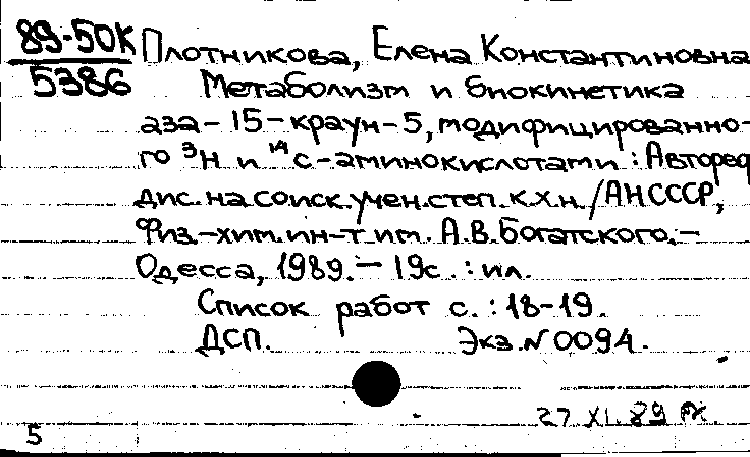 89-50К
5386
Плотникова, Елена Константиновна
Метаболизм и биокинетика
аза-15-краун-5, модифицированно-
го ³Н и ¹⁴С-аминокислотами : Автореф
дис. на соиск. учен. степ. к.х.н. / АН СССР,
Физ.-хим. ин-т им. А.В. Богатского. -
Одесса, 1989. - 19с. : ил.
Список работ с. : 18-19.
ДСП. Экз. № 0094.
27 XI. 89
5